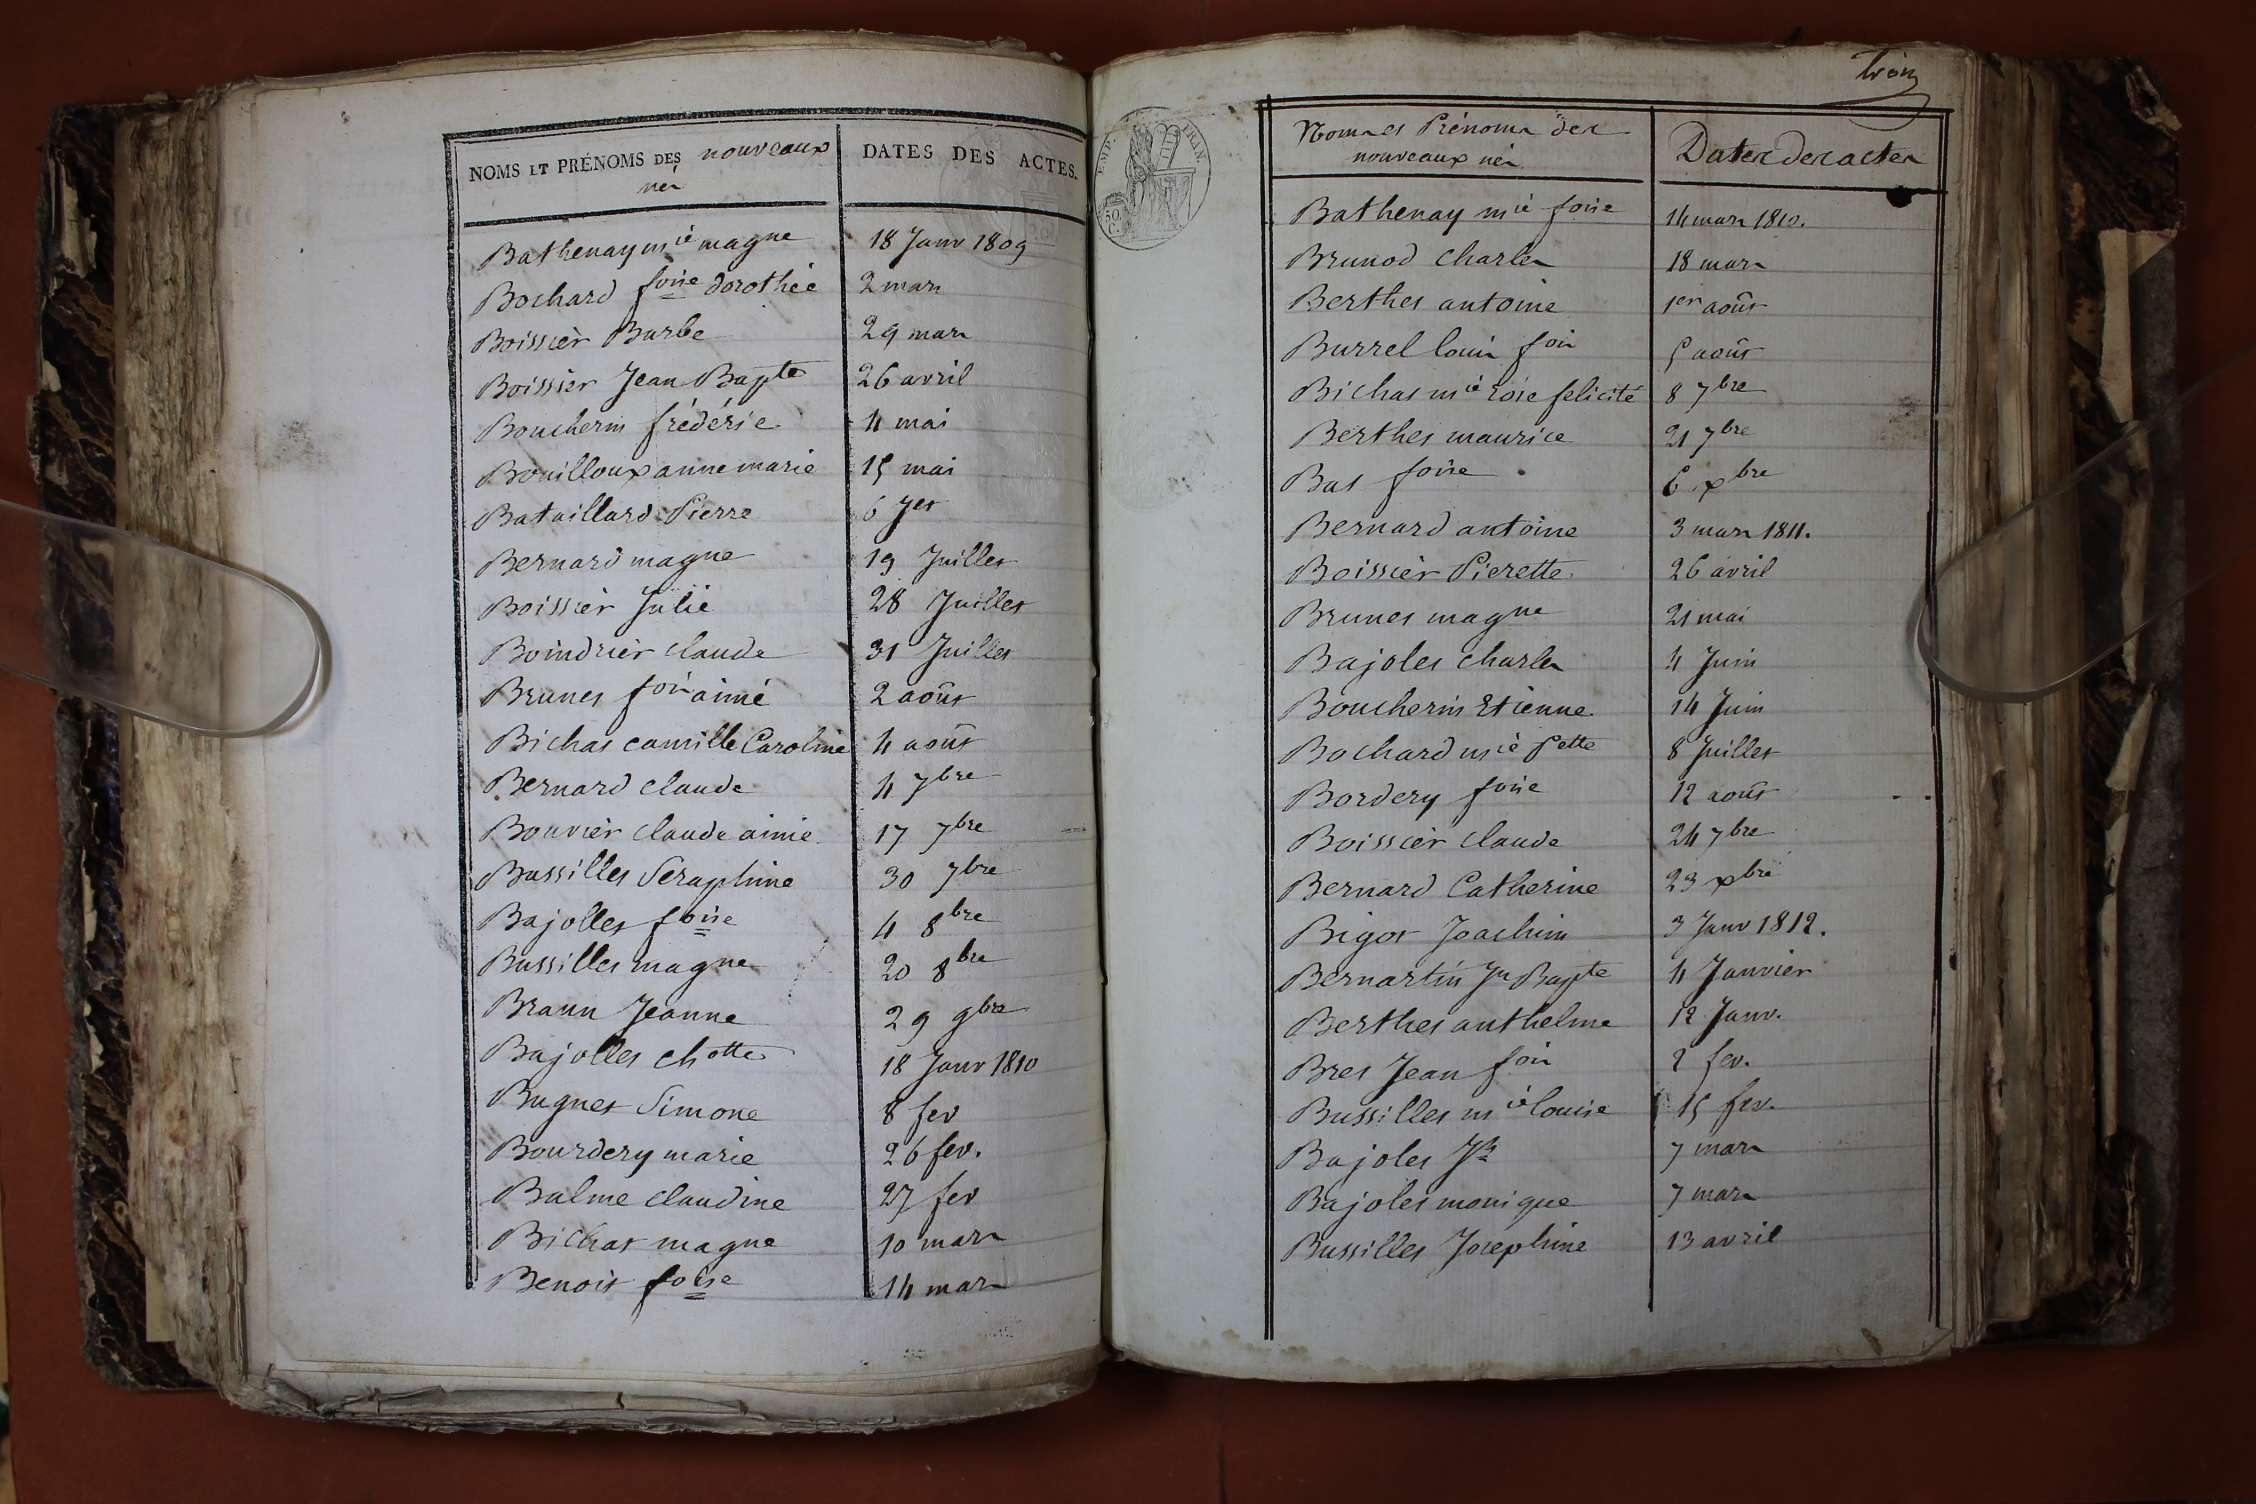 NOMS ET PRÉNOMS DES nouveaux
né
DATES DES ACTES.
Bathenay mie magne 18 Janv 1809
Bochard foise dorothée 2 mars
Boissier Barbe 29 mars
Boissier Jean Bapte 26 avril
Boucherin frédéric 4 mai
Bouilloux anne marie 15 mai
Bataillard Pierre 6
Bernard magne 19 Juillet
Boissier Julie 28 Juillet
Boindrier claude 31 Juillet
Brunet fois aimé 2 août
Bichat camille Caroline 4 août
Bernard claude 4 7bre
Bouvier claude aimé 17 7bre
Bussillet Seraphine 30 7bre
Bajollet foise 4 8bre
Bussillet magne 20 8bre
Braun Jeanne 29 9bre
Bajollet chotte 18 Janv 1810
Bugnet Simone 8 fev
Bourdery marie 26 fev.
Balme claudine 27 fev
Bichat magne 10 mars
Benoit foise 14 mars
trois
EMP. FRAN.
50 C.
Noms et Prénoms des
nouveaux nés
Dates des actes
Bathenay mie foise 14 mars 1810.
Brunod charles 18 mars
Berthet antoine 1er août
Burrel louis fois 5 août
Bichat mie rose felicité 8 7bre
Berthet maurice 21 7bre
Bas foise 6 xbre
Bernard antoine 3 mars 1811.
Boissier Pierette 26 avril
Brunet magne 21 mai
Bajolet charles 4 Juin
Boucherin Etienne 14 Juin
Bochard mie Pette 8 Juillet
Bordery foise 12 août
Boissier claude 24 7bre
Bernard Catherine 23 xbre
Bigot Joachim 3 Janv 1812.
Bernartin Jn Bapte 4 Janvier
Berthet anthelme 12 Janv.
Bret Jean fois 2 fev.
Bussillet mie louise 15 fev.
Bajolet Jh 7 mars
Bajolet monique 7 mars
Bussillet Josephine 13 avril